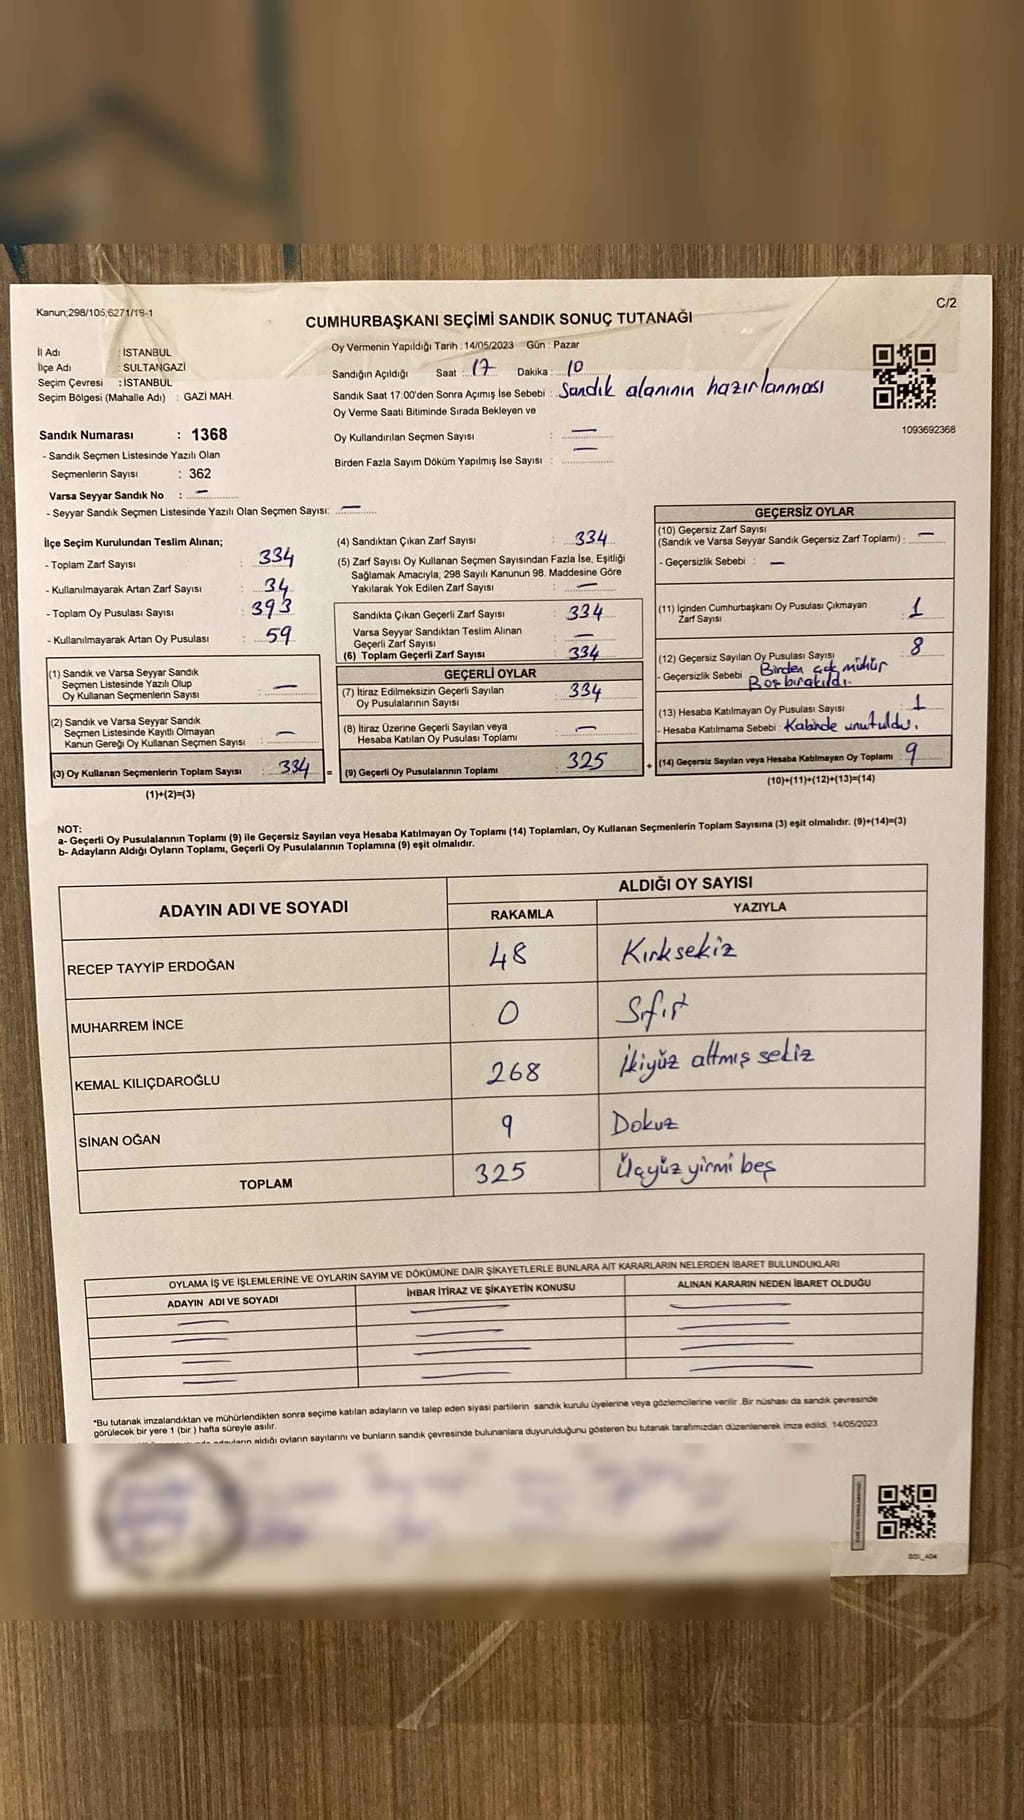 Kanun;298/105;6271/19-1
C/2
CUMHURBAŞKANI SEÇİMİ SANDIK SONUÇ TUTANAĞI
İl Adı : İSTANBUL
İlçe Adı : SULTANGAZİ
Seçim Çevresi : İSTANBUL
Seçim Bölgesi (Mahalle Adı) : GAZİ MAH.
Oy Vermenin Yapıldığı Tarih : 14/05/2023 Gün : Pazar
Sandığın Açıldığı Saat : 17 Dakika : 10
Sandık Saat 17:00'den Sonra Açımış İse Sebebi : Sandık alanının hazırlanması
Oy Verme Saati Bitiminde Sırada Bekleyen ve
Oy Kullandırılan Seçmen Sayısı : —
Birden Fazla Sayım Döküm Yapılmış İse Sayısı : —
1093692368
Sandık Numarası : 1368
- Sandık Seçmen Listesinde Yazılı Olan
Seçmenlerin Sayısı : 362
Varsa Seyyar Sandık No : —
- Seyyar Sandık Seçmen Listesinde Yazılı Olan Seçmen Sayısı: —
İlçe Seçim Kurulundan Teslim Alınan;
- Toplam Zarf Sayısı : 334
- Kullanılmayarak Artan Zarf Sayısı : 34
- Toplam Oy Pusulası Sayısı : 393
- Kullanılmayarak Artan Oy Pusulası : 59
(1) Sandık ve Varsa Seyyar Sandık
Seçmen Listesinde Yazılı Olup
Oy Kullanan Seçmenlerin Sayısı : —
(2) Sandık ve Varsa Seyyar Sandık
Seçmen Listesinde Kayıtlı Olmayan
Kanun Gereği Oy Kullanan Seçmen Sayısı : —
(3) Oy Kullanan Seçmenlerin Toplam Sayısı : 334 =
(1)+(2)=(3)
(4) Sandıktan Çıkan Zarf Sayısı : 334
(5) Zarf Sayısı Oy Kullanan Seçmen Sayısından Fazla İse, Eşitliği
Sağlamak Amacıyla, 298 Sayılı Kanunun 98. Maddesine Göre
Yakılarak Yok Edilen Zarf Sayısı : —
Sandıkta Çıkan Geçerli Zarf Sayısı : 334
Varsa Seyyar Sandıktan Teslim Alınan
Geçerli Zarf Sayısı : —
(6) Toplam Geçerli Zarf Sayısı : 334
GEÇERLİ OYLAR
(7) İtiraz Edilmeksizin Geçerli Sayılan
Oy Pusulalarının Sayısı : 334
(8) İtiraz Üzerine Geçerli Sayılan veya
Hesaba Katılan Oy Pusulası Toplamı : —
(9) Geçerli Oy Pusulalarının Toplamı : 325 +
GEÇERSİZ OYLAR
(10) Geçersiz Zarf Sayısı
(Sandık ve Varsa Seyyar Sandık Geçersiz Zarf Toplamı) : —
- Geçersizlik Sebebi : —
(11) İçinden Cumhurbaşkanı Oy Pusulası Çıkmayan
Zarf Sayısı : 1
(12) Geçersiz Sayılan Oy Pusulası Sayısı : 8
- Geçersizlik Sebebi : Birden çok mühür
Boş bırakıldı.
(13) Hesaba Katılmayan Oy Pusulası Sayısı : 1
- Hesaba Katılmama Sebebi : Kabinde unutuldu.
(14) Geçersiz Sayılan veya Hesaba Katılmayan Oy Toplamı : 9
(10)+(11)+(12)+(13)=(14)
NOT:
a- Geçerli Oy Pusulalarının Toplamı (9) ile Geçersiz Sayılan veya Hesaba Katılmayan Oy Toplamı (14) Toplamları, Oy Kullanan Seçmenlerin Toplam Sayısına (3) eşit olmalıdır. (9)+(14)=(3)
b- Adayların Aldığı Oyların Toplamı, Geçerli Oy Pusulalarının Toplamına (9) eşit olmalıdır.
ADAYIN ADI VE SOYADI
ALDIĞI OY SAYISI
RAKAMLA YAZIYLA
RECEP TAYYİP ERDOĞAN 48 Kırksekiz
MUHARREM İNCE 0 Sıfır
KEMAL KILIÇDAROĞLU 268 İkiyüz altmış sekiz
SİNAN OĞAN 9 Dokuz
TOPLAM 325 Üçyüz yirmi beş
OYLAMA İŞ VE İŞLEMLERİNE VE OYLARIN SAYIM VE DÖKÜMÜNE DAİR ŞİKAYETLERLE BUNLARA AİT KARARLARIN NELERDEN İBARET BULUNDUKLARI
ADAYIN ADI VE SOYADI İHBAR İTİRAZ VE ŞİKAYETİN KONUSU ALINAN KARARIN NEDEN İBARET OLDUĞU
*Bu tutanak imzalandıktan ve mühürlendikten sonra seçime katılan adayların ve talep eden siyasi partilerin sandık kurulu üyelerine veya gözlemcilerine verilir. Bir nüshası da sandık çevresinde
görülecek bir yere 1 (bir) hafta süreyle asılır.
aldığı oyların sayılarını ve bunların sandık çevresinde bulunanlara duyurulduğunu gösteren bu tutanak tarafımızdan düzenlenerek imza edildi. 14/05/2023